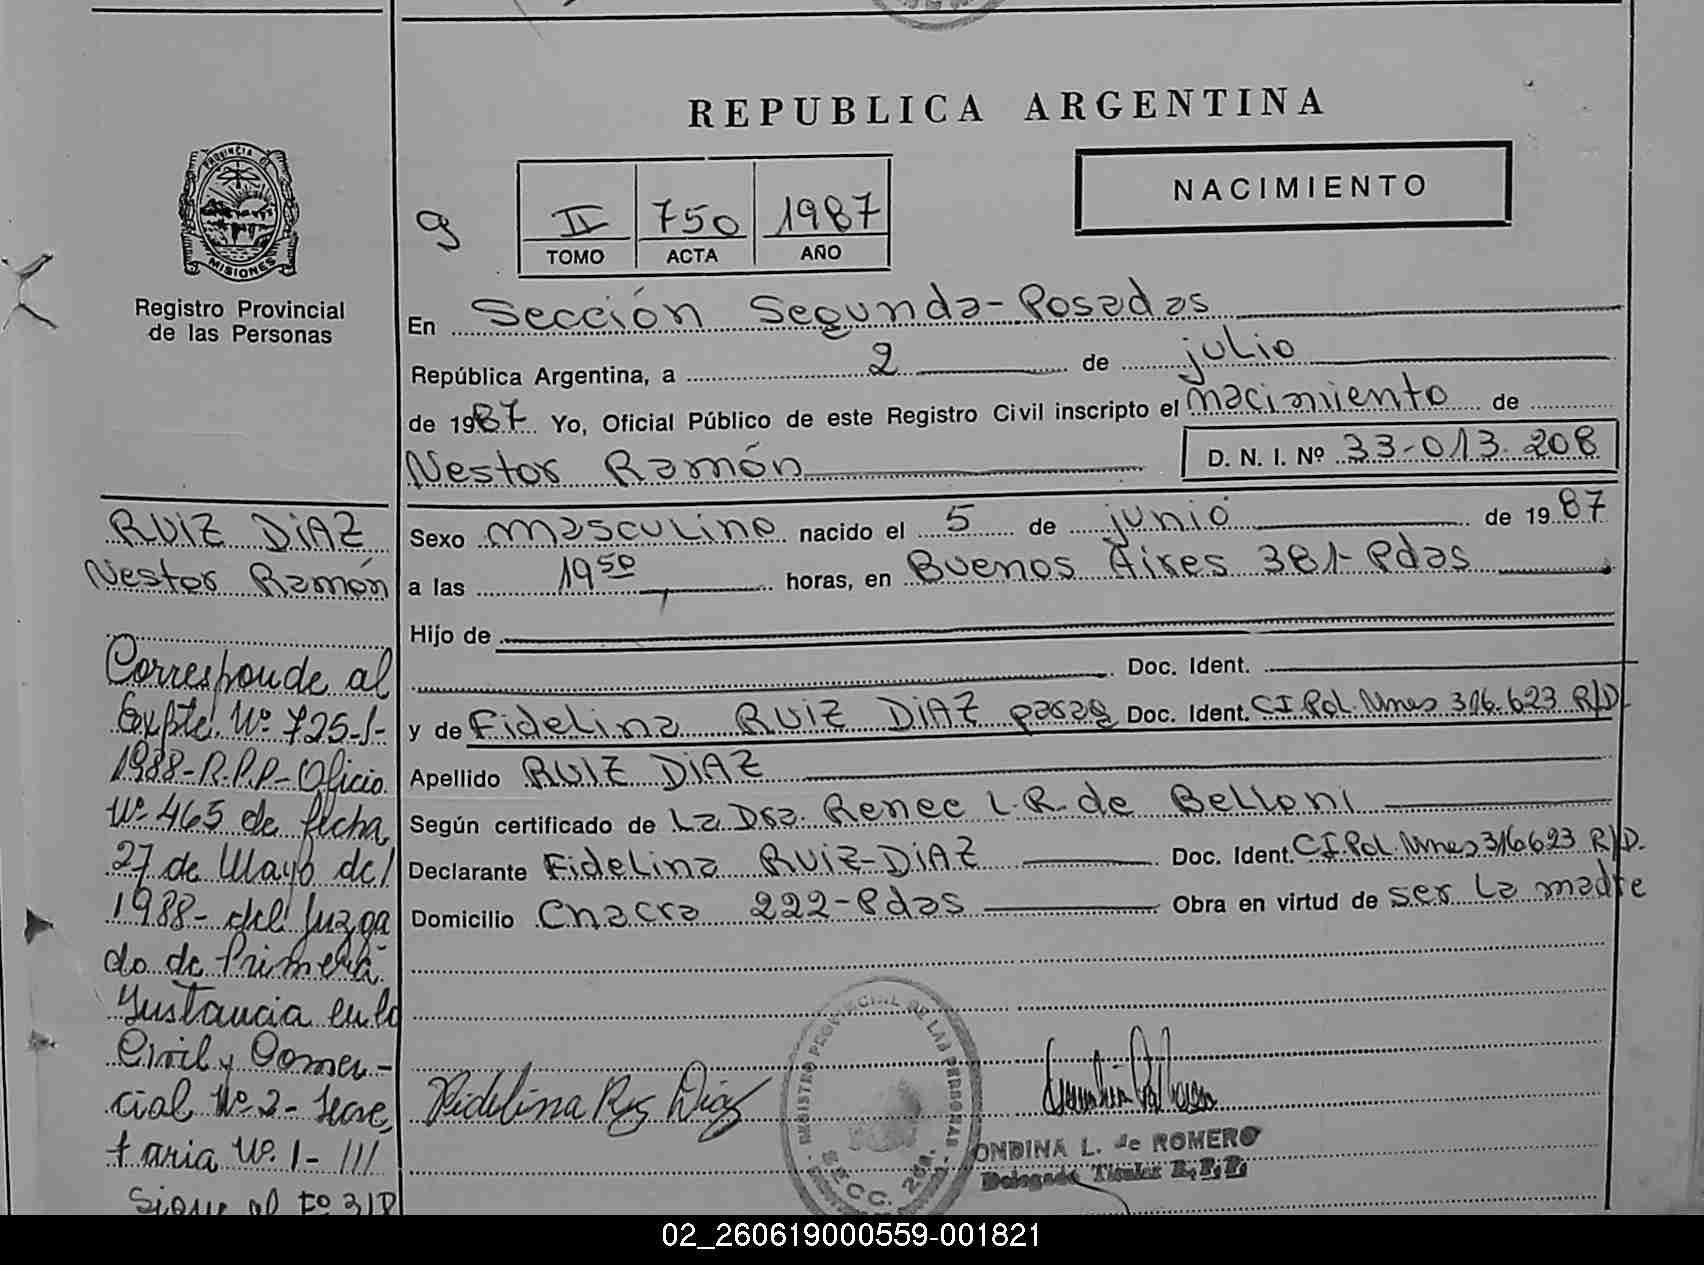 REPUBLICA ARGENTINA
PROVINCIA DE
MISIONES
Registro Provincial
de las Personas
g
II 750 1987
TOMO ACTA AÑO
NACIMIENTO
En Sección Segunda-Posadas
República Argentina, a 2 de julio
de 1987 Yo, Oficial Público de este Registro Civil inscripto el nacimiento de
Nestor Ramón D. N. I. Nº 33-013.208
Sexo masculino nacido el 5 de junio de 1987
a las 19 50 horas, en Buenos Aires 381-Pdas
Hijo de
Doc. Ident.
y de Fidelina RUIZ DIAZ parag Doc. Ident. CI.Pol.Mnes 316.623 R/D.
Apellido RUIZ DIAZ
Según certificado de La Dra. Renee L.R. de Belloni
Declarante Fidelina RUIZ-DIAZ Doc. Ident. CI.Pol.Mnes 316623 R/D.
Domicilio Chacra 222-Pdas Obra en virtud de ser La madre
RUIZ DIAZ
Nestor Ramón
Corresponde al
Expte. Nº 725-J-
1988-R.P.P-Oficio
Nº 465 de fecha
27 de Mayo del
1988- del Juzga
do de Primera
Instancia en lo
Civil y Comer-
cial Nº 2- Secre
taria Nº 1- III
Sigue al Fº 31P
Fidelina Ruz Diaz
REGISTRO PROVINCIAL DE LAS PERSONAS
SECC. 2da.
ONDINA L. de ROMERO
Delegada Titular R.P.P.
02_260619000559-001821